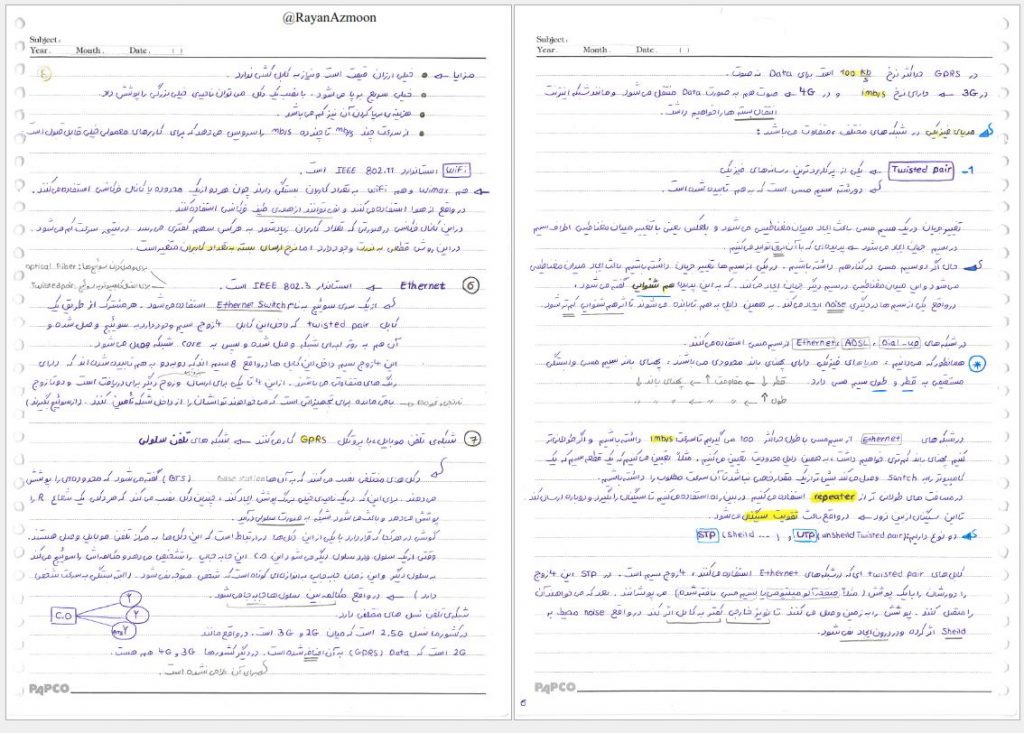 @RayanAzmoon
Subject:
Year. Month. Date. ( )
مزایا ← • خیلی ارزان قیمت است و نیاز به کابل کشی ندارد.
• خیلی سریع برپا می‌شود. با نصب یک دکل می‌توان ناحیه‌ی خیلی بزرگی را پوشش داد.
• هزینه‌ی برپا کردن آن نیز کم می‌باشد.
• از سرعت چند mbps تا چند ده mb/s را سرویس می‌دهد که برای کاربرهای معمولی خیلی قابل قبول است
WiFi استاندارد IEEE 802.11 است.
← هم wimax و هم WiFi به تعداد کاربران بستگی دارند چون هر دو از یک محدوده یا کانال فرکانسی استفاده می‌کنند.
در واقع از هوا استفاده می‌کنند و نمی‌توانند از هر نوع طیف فرکانسی استفاده کنند
در این کانال فرکانسی در صورتی که تعداد کاربران زیاد شود به هر کس سهم کمتری می‌رسد در نتیجه سرعت کم می‌شود.
در این روش قطعی به ندرت وجود دارد اما نرخ ارسال بسته به تعداد کاربران متغیر است
optical Fiber:
Twisted pair:
6 Ethernet ← استاندارد IEEE 802.3 است.
از یک سری سوئیچ به نام Ethernet Switch استفاده می‌شود. هر مشترک از طریق یک
کابل twisted pair که داخل این کابل 4 زوج سیم وجود دارد به سوئیچ وصل شده و
آن هم به روتر لبه‌ای شبکه وصل شده و سپس به core شبکه وصل می‌شود.
این 4 زوج سیم داخل این کابل ها در واقع 8 سیم اند که دو به دو به هم تابیده شده اند که دارای
رنگ های متفاوتی می‌باشند. از این 4 تا یکی برای ارسال و زوج دیگر برای دریافت است و دو تا زوج
باقی مانده برای تجهیزاتی است که می‌خواهند توانشان را از داخل شبکه تأمین کنند. (از سوئیچ بگیرند)
7 شبکه‌ی تلفن موبایل: با پروتکل GPRS کار می‌کنند ← شبکه های تلفن سلولی
دکل های مختلفی نصب می‌کنند که به آن ها base station (BTS) گفته می‌شود که محدوده‌ای را پوشش
می‌دهند. برای این که در یک ناحیه‌ی خیلی بزرگ پوشش ایجاد کند، چندین دکل نصب می‌کند که هر دکلی یک شعاع R را
پوشش می‌دهد و باعث می‌شود شبکه به صورت سلولی درآید.
گوشی در هر کجا که قرار دارد با یکی از این دکل ها در ارتباط است که این دکل ها به مرکز تلفن موبایل وصل هستند.
وقتی از یک سلول وارد سلول دیگر می‌شود این C.O این جابه جایی را تشخیص می‌دهد و مکالمه اش را سوئیچ می‌کند
به سلول دیگر و این زمان جابه جایی به اندازه‌ای کوتاه است که شخص متوجه نمی‌شود. (البته بستگی به سرعت شخص
دارد) ← در واقع مکالمه بین سلول ها جابه جا می‌شود.
شبکه‌ی تلفن نسل های مختلفی دارد.
C.O
در کشور ما نسل 2.5G است که میان 2G و 3G است. در واقع مانند
2G است که Data (GPRS) به آن اضافه شده است. در دیگر کشورها 3G و 4G هم هست.
PAPCO
Subject:
Year. Month. Date. ( )
در GPRS حداکثر نرخ 100 Kb/s است برای Data نه صوت.
در 3G ← دارای نرخ 1mb/s و در 4G ← صوت هم به صورت Data منتقل می‌شود و مانند شبکه اینترنت
انتقال بسته ها را خواهیم داشت.
مدیای فیزیکی در شبکه های مختلف، متفاوت می‌باشند:
1- Twisted pair ← یکی از پرکاربردترین رسانه های فیزیکی
دو رشته سیم مسی است که به هم تابیده شده است.
تغییر جریان در یک سیم مسی باعث ایجاد میدان مغناطیسی می‌شود و بالعکس یعنی با تغییر میدان مغناطیسی اطراف سیم
در سیم جریان ایجاد می‌شود ← پدیده‌ای که با آن برق تولید می‌کنیم.
حال اگر دو سیم مسی در کنار هم داشته باشیم، در یکی از سیم ها تغییر جریان داشته باشیم باعث ایجاد میدان مغناطیسی
می‌شود و این میدان مغناطیسی در سیم دیگر جریان ایجاد می‌کند. که به این پدیده هم شنوایی گفته می‌شود،
در واقع یکی از سیم ها در دیگری noise ایجاد می‌کند. به همین دلیل به هم تابانده می‌شوند تا اثر هم شنوایی کم تر شود
در شبکه های Dial-up، ADSL، Ethernet از سیم مسی استفاده می‌کنند.
همانطور که می‌دانیم: مدیاهای فیزیکی دارای پهنای باند محدودی می‌باشند: پهنای باند سیم مسی وابستگی
مستقیمی به قطر و طول سیم مسی دارد. قطر ↓ ← مقاومت ↑ ← پهنای باند ↓
طول ↑ ← " " ← " "
در شبکه های Ethernet از سیم مسی با طول حداکثر 100 می‌گیریم تا سرعت 1mb/s داشته باشیم و اگر طولانی تر
کنیم پهنای باند کم تری خواهیم داشت، به همین دلیل محدودیت تعیین می‌کنیم. مثلاً تعیین می‌کنیم که یک قطر سیم که یک
کامپیوتر را به Switch وصل می‌کند بیش تر از یک مقدار معینی نباشد تا آن سرعت مطلوب را داشته باشیم.
در مسافت های طولانی تر از repeater استفاده می‌کنیم در بین راه استفاده می‌کنیم تا سیگنال را بگیرد و دوباره ارسال کند
تا این سیگنال از بین نرود ← در واقع باعث تقویت سیگنال می‌شود.
دو نوع داریم: UTP (unsheild Twisted pair) و STP (Sheild ... )
کابل های twisted pair ای که در شبکه های Ethernet استفاده می‌کنند، 4 زوج سیم است. در STP این 4 زوج
را دورشان را با یک پوشش (مثلاً فویل آلومینیومی یا سیم مسی بافته شده) می‌پوشانند. بعد که می‌خواهند آن
را متصل کنند. پوشش را به زمین وصل می‌کنند تا نویز خارجی کمتر به کابل اثر کند در واقع noise محیط به
Sheild اثر کرده و در درون ایجاد نمی‌شود.
PAPCO